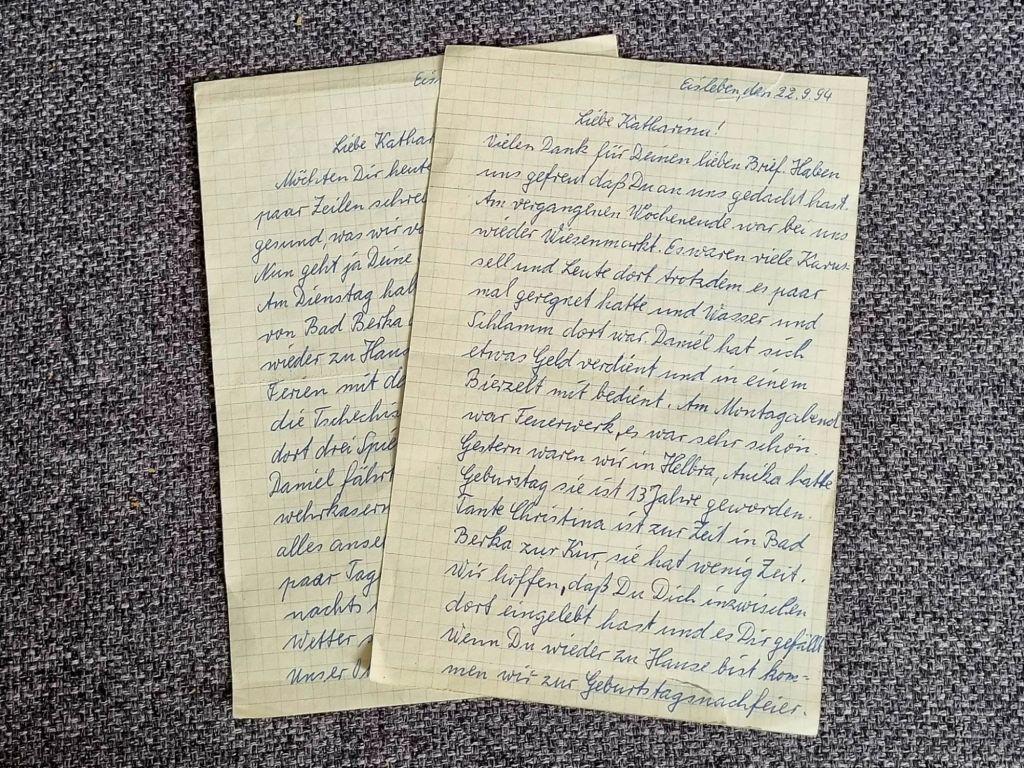 Eis
Liebe Kathar
Möchten Dir heute
paar Zeilen schrei
gesund, was wir vo
Nun geht ja Deine
Am Dienstag hab
von Bad Berka
wieder zu Haus
Ferien mit de
die Tschechis
dort drei Spie
Daniel fährt
wehrkasern
alles anse
paar Tag
nachts
Wetter
Unser
Eisleben, den 22.9.94
Liebe Katharina!
Vielen Dank für Deinen lieben Brief. Haben
uns gefreut daß Du an uns gedacht hast.
Am vergangenen Wochenende war bei uns
wieder Wiesenmarkt. Es waren viele Karus-
sell und Leute dort trotzdem es paar
mal geregnet hatte und Wasser und
Schlamm dort war. Daniel hat sich
etwas Geld verdient und in einem
Bierzelt mit bedient. Am Montagabend
war Feuerwerk, es war sehr schön.
Gestern waren wir in Helbra, Anika hatte
Geburstag sie ist 13 Jahre geworden.
Tante Christina ist zur Zeit in Bad
Berka zur Kur, sie hat wenig Zeit.
Wir hoffen, daß Du Dich inzwischen
dort eingelebt hast und es Dir gefällt
Wenn Du wieder zu Hause bist kom-
men wir zur Geburtstagsnachfeier.